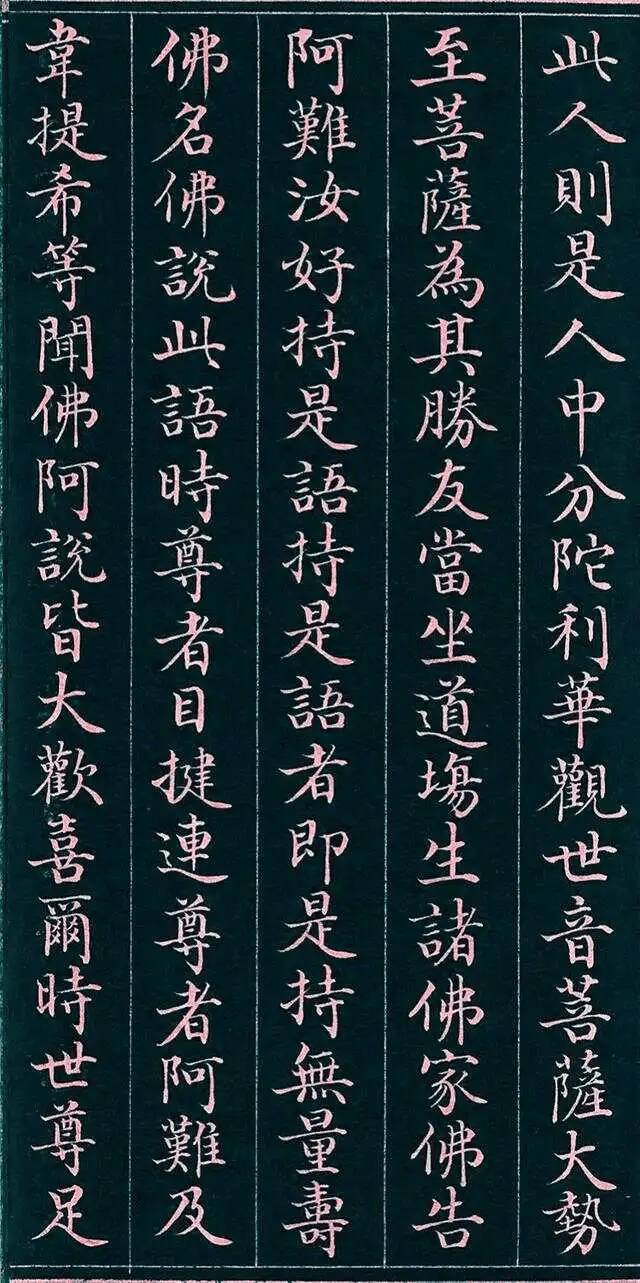 此人則是人中分陀利華觀世音菩薩大勢
至菩薩為其勝友當坐道場生諸佛家佛告
阿難汝好持是語持是語者即是持無量壽
佛名佛說此語時尊者目揵連尊者阿難及
韋提希等聞佛阿說皆大歡喜爾時世尊足